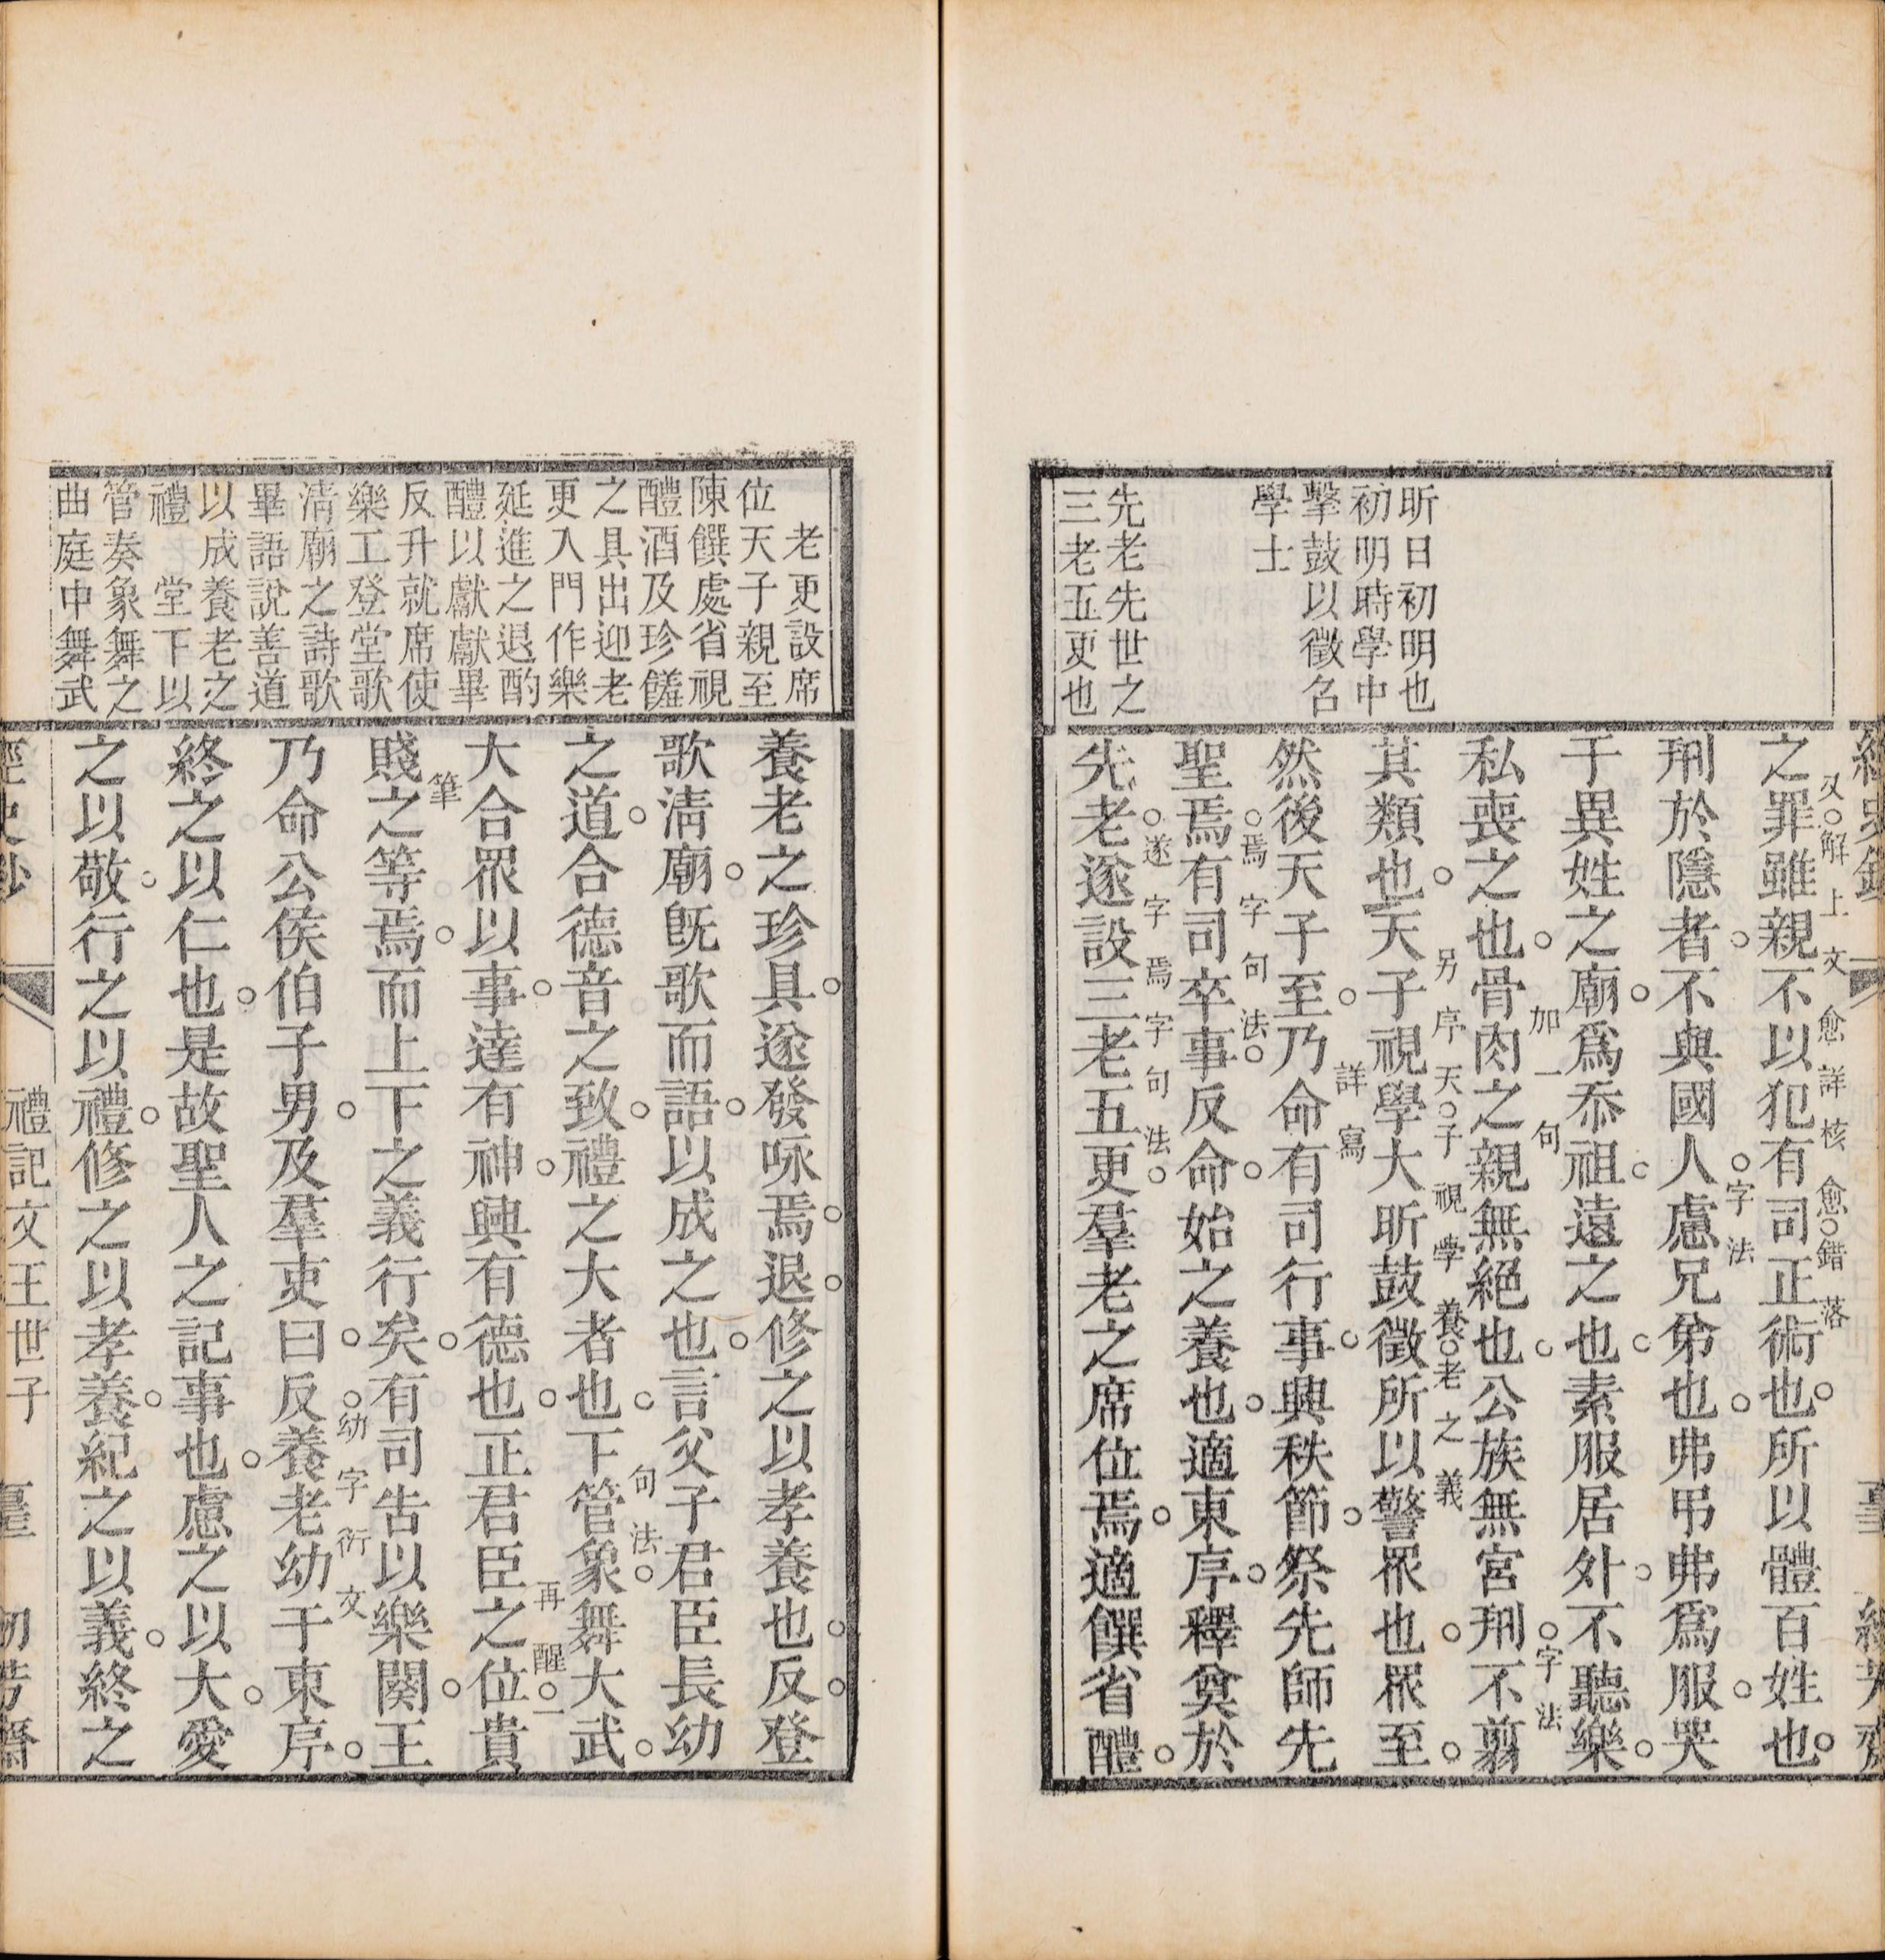 昕日初明也
初明時學中
擊鼓以徵召
學士
先老先世之
三老五更也
之罪雖親不以犯有司正術也所以體百姓也
又解上文愈詳核愈錯落
刑於隱者不與國人慮兄弟也弗弔弗爲服哭
字法
于異姓之廟爲忝祖遠之也素服居外不聽樂
私喪之也骨肉之親無絕也公族無宮刑不翦
加一句
字法
其類也天子視學大昕鼓徵所以警眾也眾至
另序天子視學養老之義
然後天子至乃命有司行事興秩節祭先師先
詳寫
聖焉有司卒事反命始之養也適東序釋奠於
焉字句法
先老遂設三老五更羣老之席位焉適饌省醴
遂字焉字句法
老更設席
位天子親至
陳饌處省視
醴酒及珍饈
之具出迎老
更入門作樂
延進之退酌
醴以獻獻畢
反升就席使
樂工登堂歌
清廟之詩歌
畢語說善道
以成養老之
禮堂下以
管奏象舞之
曲庭中舞武
養老之珍具遂發咏焉退修之以孝養也反登
歌清廟既歌而語以成之也言父子君臣長幼
之道合德音之致禮之大者也下管象舞大武
句法
大合眾以事達有神興有德也正君臣之位貴
再醒一
賤之等焉而上下之義行矣有司告以樂闋王
筆
乃命公侯伯子男及羣吏曰反養老幼于東序
幼字衍文
終之以仁也是故聖人之記事也慮之以大愛
之以敬行之以禮修之以孝養紀之以義終之
禮記文王世子